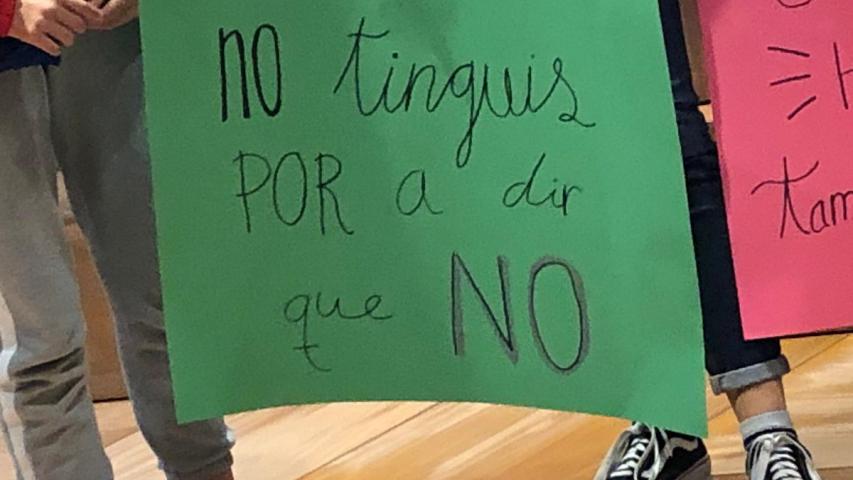 NO tinguis
POR a dir
que NO